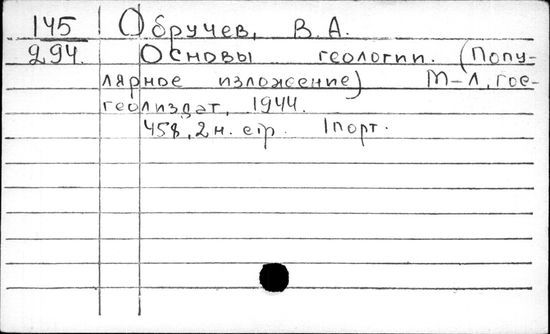 145 Обручев, В.А.
294. Основы геологии. (Попу-
лярное изложение) М-Л, гос-
геолиздат, 1944.
458, 2н. стр. 1порт.